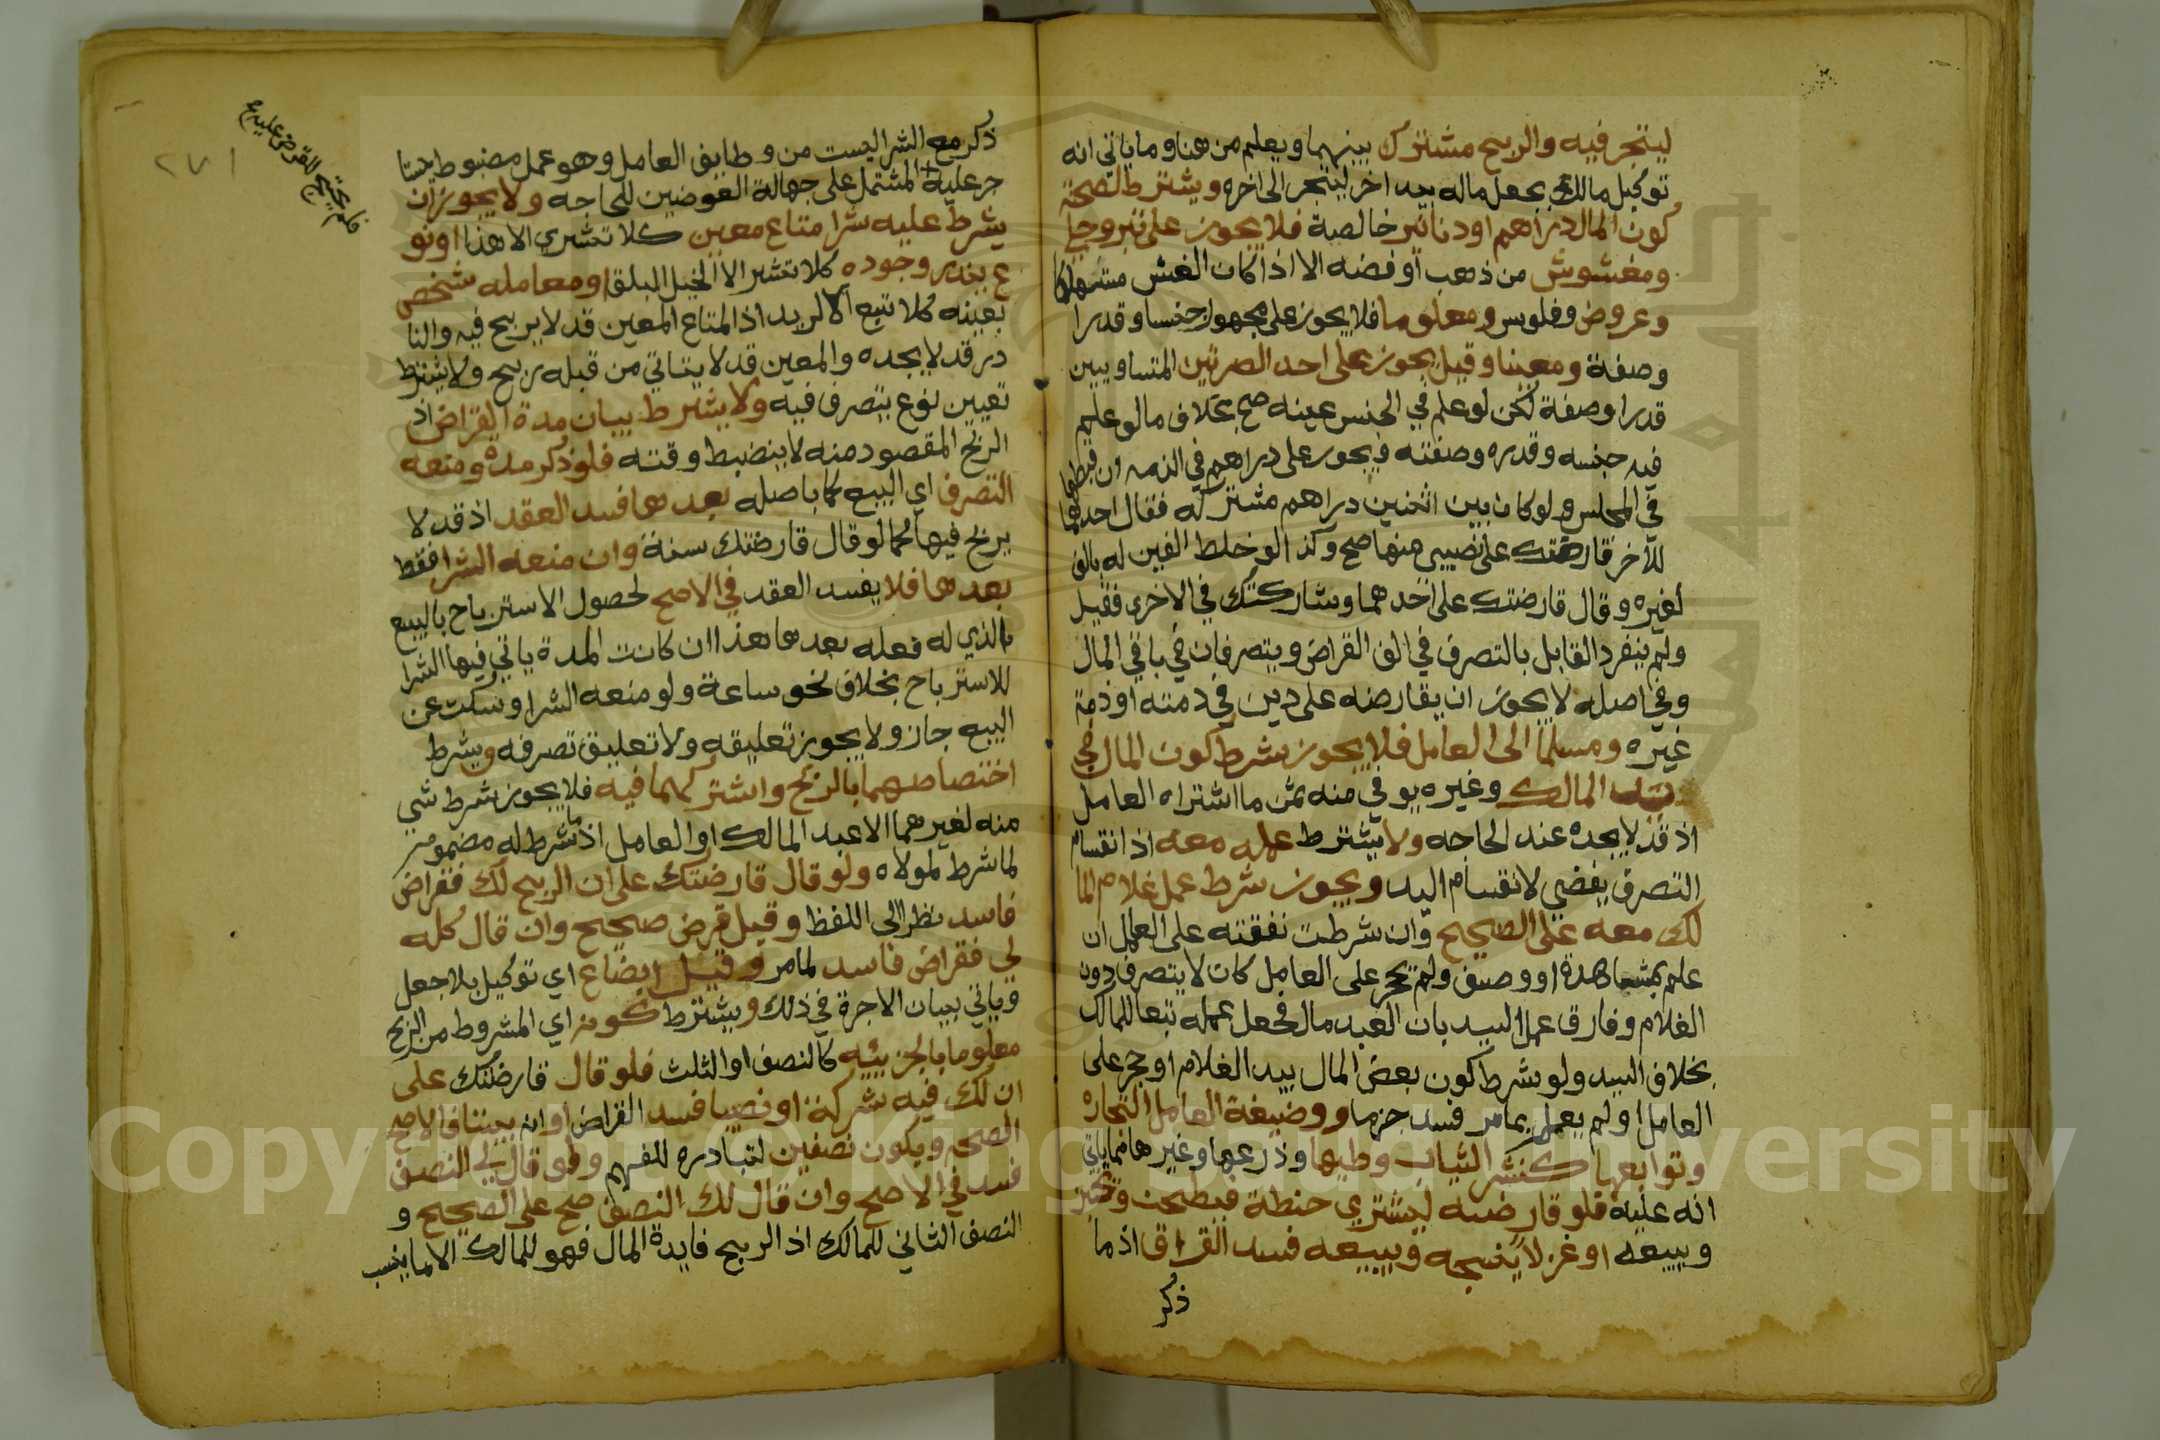 ليتجر فيه والربح مشترك بينهما ويعلم من هنا وما ياتي انه
توكيل مالك بجعل ماله بيد اخر ليتجر الى اخره ويشترط لصحته
كون المال دراهم او دنانير خالصة فلا يجوز على تبر وحلي
ومغشوش من ذهب او فضه الا اذا كان الغش مستهلكا
وعروض وفلوس ومعلوما فلا يجوز على مجهول جنسا وقدرا
وصفة ومعينا وقيل يجوز على احد الصرتين المتساويين
قدرا وصفة لكن لو علم في الجنس عينه صح بخلاف ما لو علم
فيه جنسه وقدره وصفته ويجوز على دراهم في الذمه ان قبضها
في المجلس ولو كان بين اثنين دراهم مشتركه فقال احدهما
للآخر قارضتك على نصيبي منها صح وكذا لو خلط الفين له بالف
لغيره وقال قارضتك على احدهما وشاركتك في الاخرى فقبل
ولم ينفرد القابل بالتصرف في الف القراض ويتصرفان في باقي المال
وفي اصله لا يجوز ان يقارضه على دين في ذمته او ذمة
غيره ومسلما الى العامل فلا يجوز شرط كون المال في
يد المالك وغيره يوفي منه ثمن ما اشتراه العامل
اذ قد لا يجده عند الحاجه ولا يشترط عمله معه اذ انقسام
التصرف يفضي لانقسام اليد ويجوز شرط عمل غلام الما
لك معه على الصحيح وان شرطت نفقته على العامل ان
علم بمشاهدة او وصف ولم يحجر على العامل كان لا يتصرف دون
الغلام وفارق عمل السيد بان العبد مال فجعل عمله تبعا للمالك
بخلاف السيد ولو شرط كون بعض المال بيد الغلام او حجر على
العامل او لم يعلم بما مر فسد جزما ووضيفة العامل التجاره
وتوابعها كنشر الثياب وطيها وذرعها وغيرها مما ياتي
انه عليه فلو قارضه ليشتري حنطة فيطحن ويخبز
ويبيعه او غزلا ينسجه ويبيعه فسد القراق اذ ما
ذكر
ذكر مع الشرا ليست من وظايف العامل وهو عمل مضبوط يستا
جر عليه المشتمل على جهالة العوضين للحاجه ولا يجوز ان
يشرط عليه شرا متاع معين كلا تشري الا هذا او نو
ع يندر وجوده كلا تشتر الا الخيل البلق او معامله شخص
بعينه كلا تبع الا لزيد اذ المتاع المعين قد لا يربح فيه والنا
در قد لا يجده والمعين قد لا يتاتي من قبله ربح ولا يشترط
تعيين نوع يتصرف فيه ولا يشرط بيان مدة القراض اذ
الربح المقصود منه لا ينضبط وقته فلو ذكر مدة ومنعه
التصرف اي البيع كما باصله بعدها فسد العقد اذ قد لا
يربح فيها كما لو قال قارضتك سنة وان منعه الشرا فقط
بعدها فلا يفسد العقد في الاصح لحصول الاسترباح بالبيع
الذي له فعله بعدها هذا ان كانت المدة ياتي فيها الشرا
للاسترباح بخلاف نحو ساعة ولو منعه الشرا وسكت عن
البيع جاز ولا يجوز تعليقه ولا تعليق تصرفه ويشرط
اختصاصهما بالربح واشتراكهما فيه فلا يجوز شرط شي
منه لغيرهما الا عبد المالك او العامل اذ ما شرط له مضموم
لما شرط لمولاه ولو قال قارضتك على ان الربح لك فقراض
فاسد نظرا الى اللفظ وقيل قرض صحيح وان قال كله
لي فقراض فاسد لما مر وقيل ابضاع اي توكيل بلا جعل
وياتي بيان الاجرة في ذلك ويشترط كونه اي المشروط من الربح
معلوما بالجزئيه كالنصف او الثلث فلو قال قارضتك على
ان لك فيه شركة او نصيبا فسد القراض او ان بيننا فالاصح
الصحه ويكون نصفين لتبادره للفهم ولو قال لي النصف
فسد في الاصح وان قال لك النصف صح على الصحيح و
النصف الثاني للمالك اذ الربح فايدة المال فهو للمالك الا ما ينسب
فلم يحتج للقرض عليه
٢٧١
Copyright © King Saud University